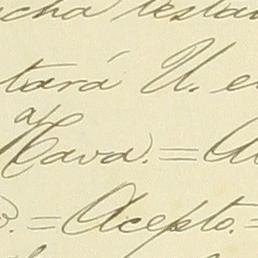 cha testa
tará U. e
Hava. = A
o. = Acepto. =